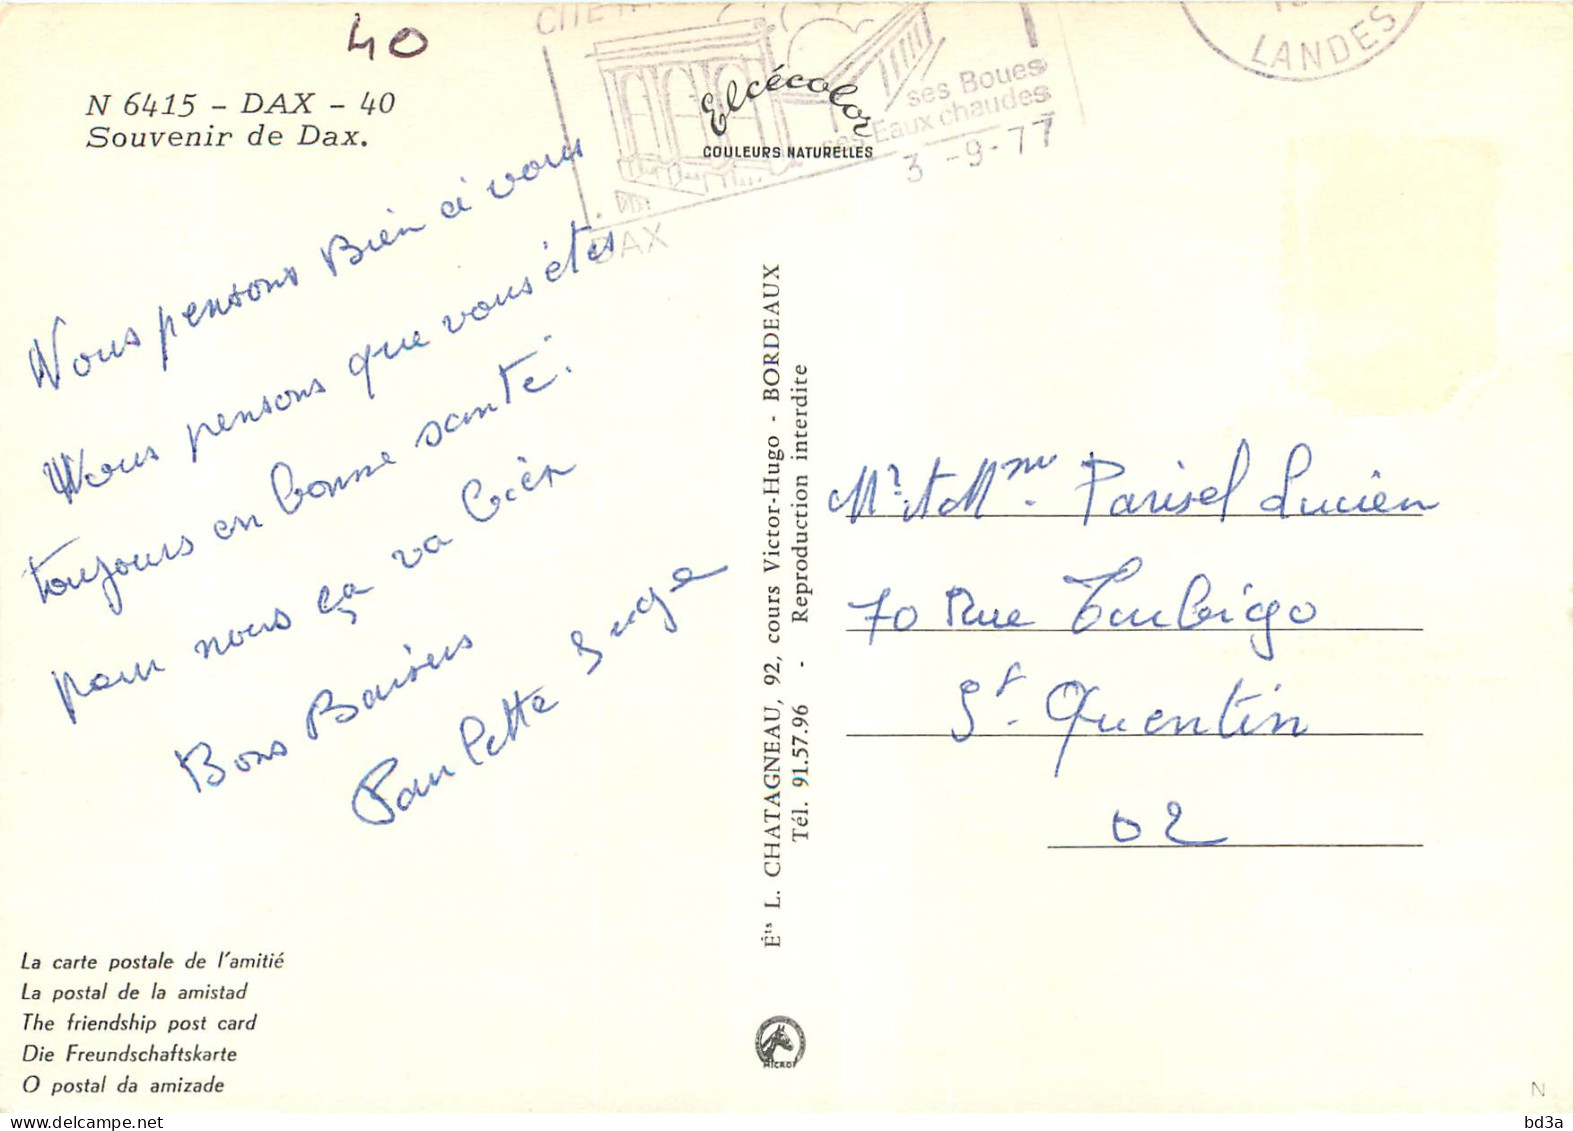 40
N 6415 - DAX - 40
Souvenir de Dax.
Elcécolor
COULEURS NATURELLES
ses Boues
ses Eaux chaudes
3 -9-77
DAX
LANDES
Nous pensons Bien à vous
Nous pensons que vous êtes
toujours en bonne santé.
pour nous ça va bien
Bons Baisers
Paulette Serge
Éts L. CHATAGNEAU, 92, cours Victor-Hugo - BORDEAUX
Tél. 91.57.96 - Reproduction interdite
Mr. et Mme. Parisel Lucien
70 Rue Turbigo
St. Quentin
02
La carte postale de l'amitié
La postal de la amistad
The friendship post card
Die Freundschaftskarte
O postal da amizade
MICRO
N
bd3a